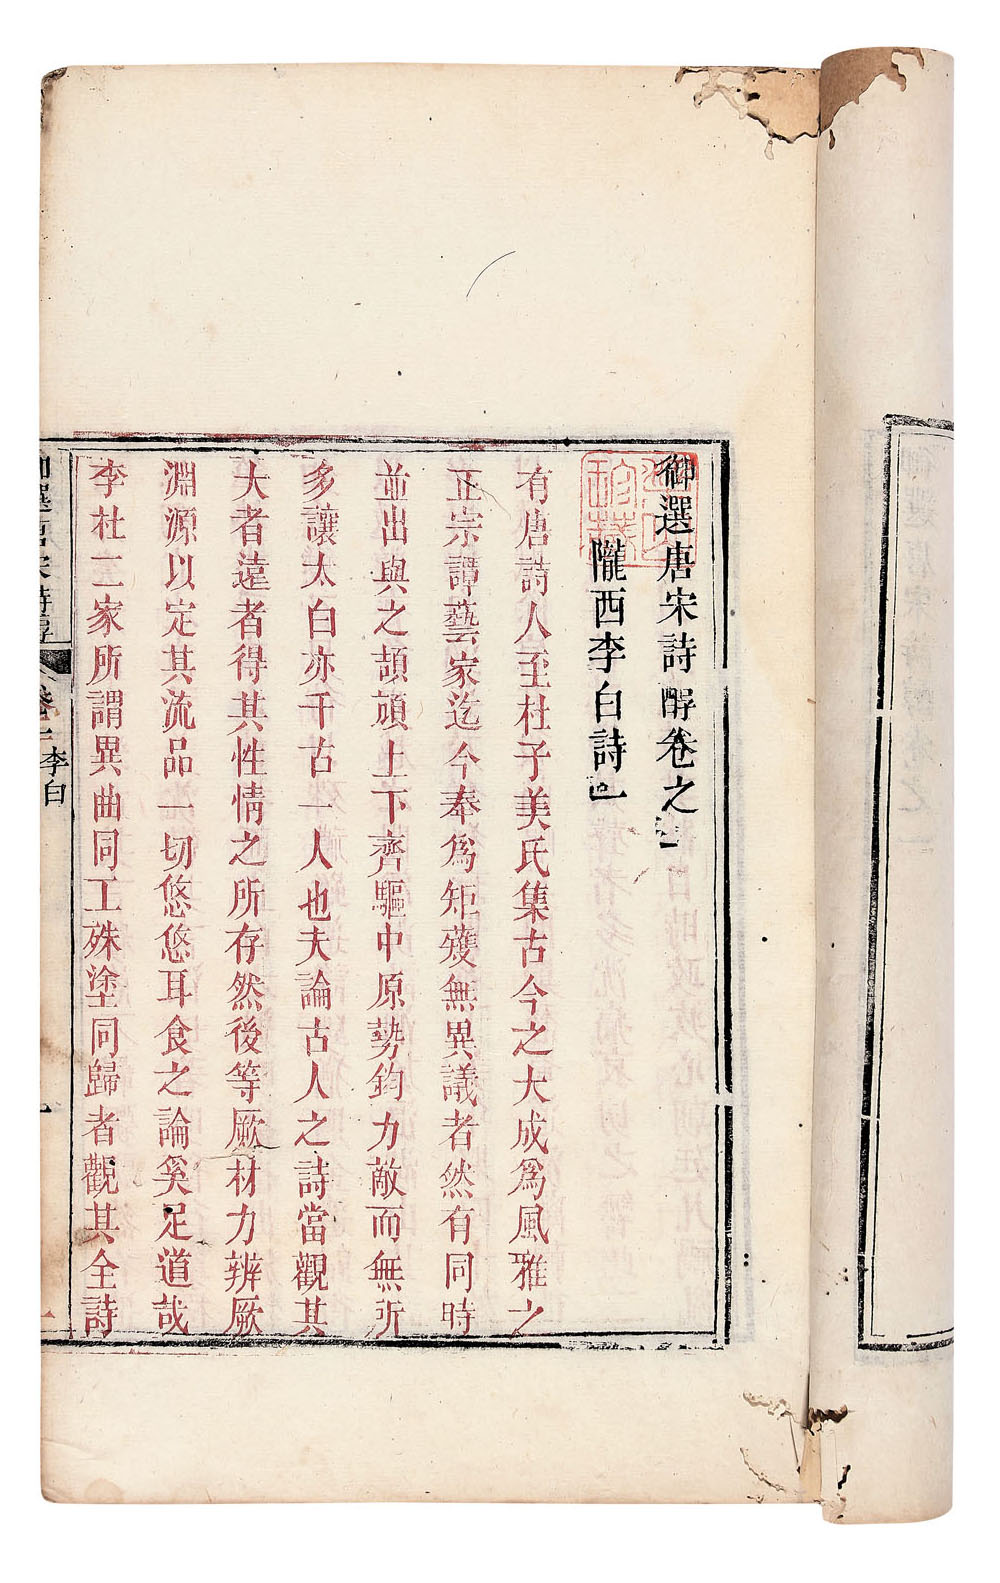 御選唐宋詩醇卷之一
隴西李白詩一
有唐詩人至杜子美氏集古今之大成爲風雅之
正宗譚藝家迄今奉爲矩矱無異議者然有同時
並出與之頡頏上下齊驅中原勢鈞力敵而無所
多讓太白亦千古一人也夫論古人之詩當觀其
大者遠者得其性情之所存然後等厥材力辨厥
淵源以定其流品一切悠悠耳食之論奚足道哉
李杜二家所謂異曲同工殊塗同歸者觀其全詩
御選唐宋詩醇
卷一 李白
一